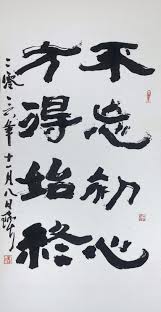 不忘初心
方得始終
二零一六年十一月八日